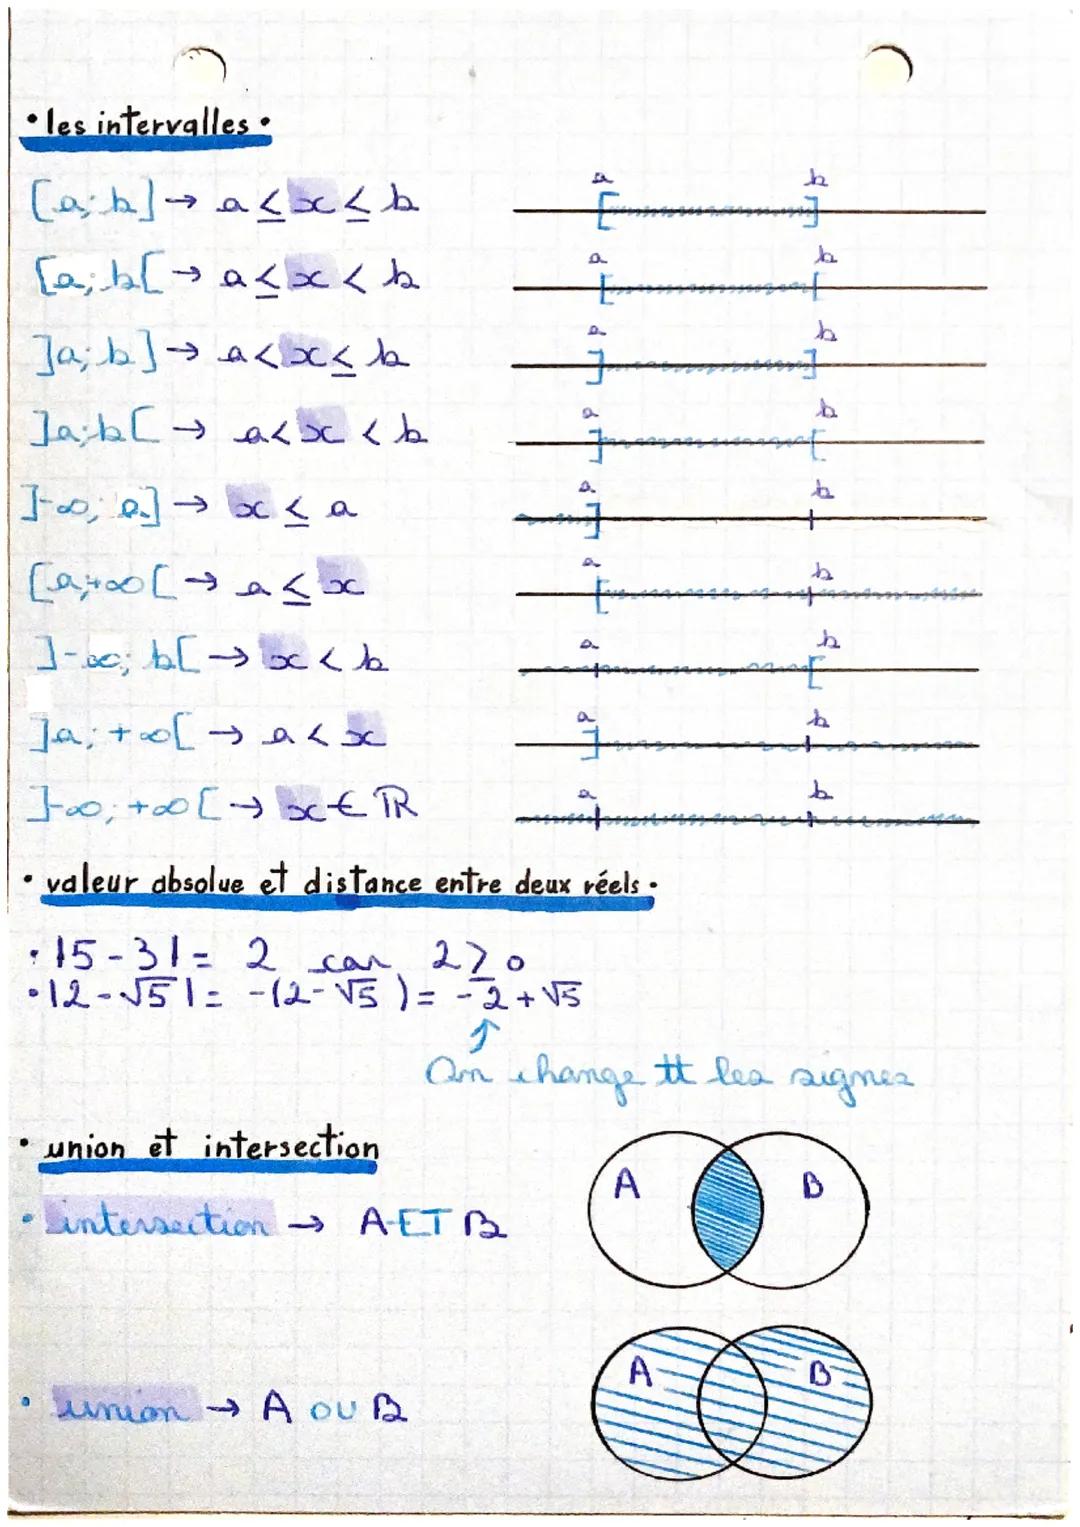 • les intervalles •
[a; b] → a ≤ x ≤ b
a b
[a; b[ → a ≤ x < b
a b
]a; b] → a < x ≤ b
a b
]a; b[ → a < x < b
a b
]-∞; a] → x ≤ a
a b
[a; +∞[ → a ≤ x
a b
]-∞; b[ → x < b
a b
]a; +∞[ → a < x
a b
]-∞; +∞[ → x ∈ ℝ
a b
• valeur absolue et distance entre deux réels •
• |5-3| = 2 car 2 ≥ 0
• |2-√5| = -(2-√5) = -2+√5
↑
On change tt les signes
• union et intersection
• intersection → A ET B
A B
• union → A OU B
A B